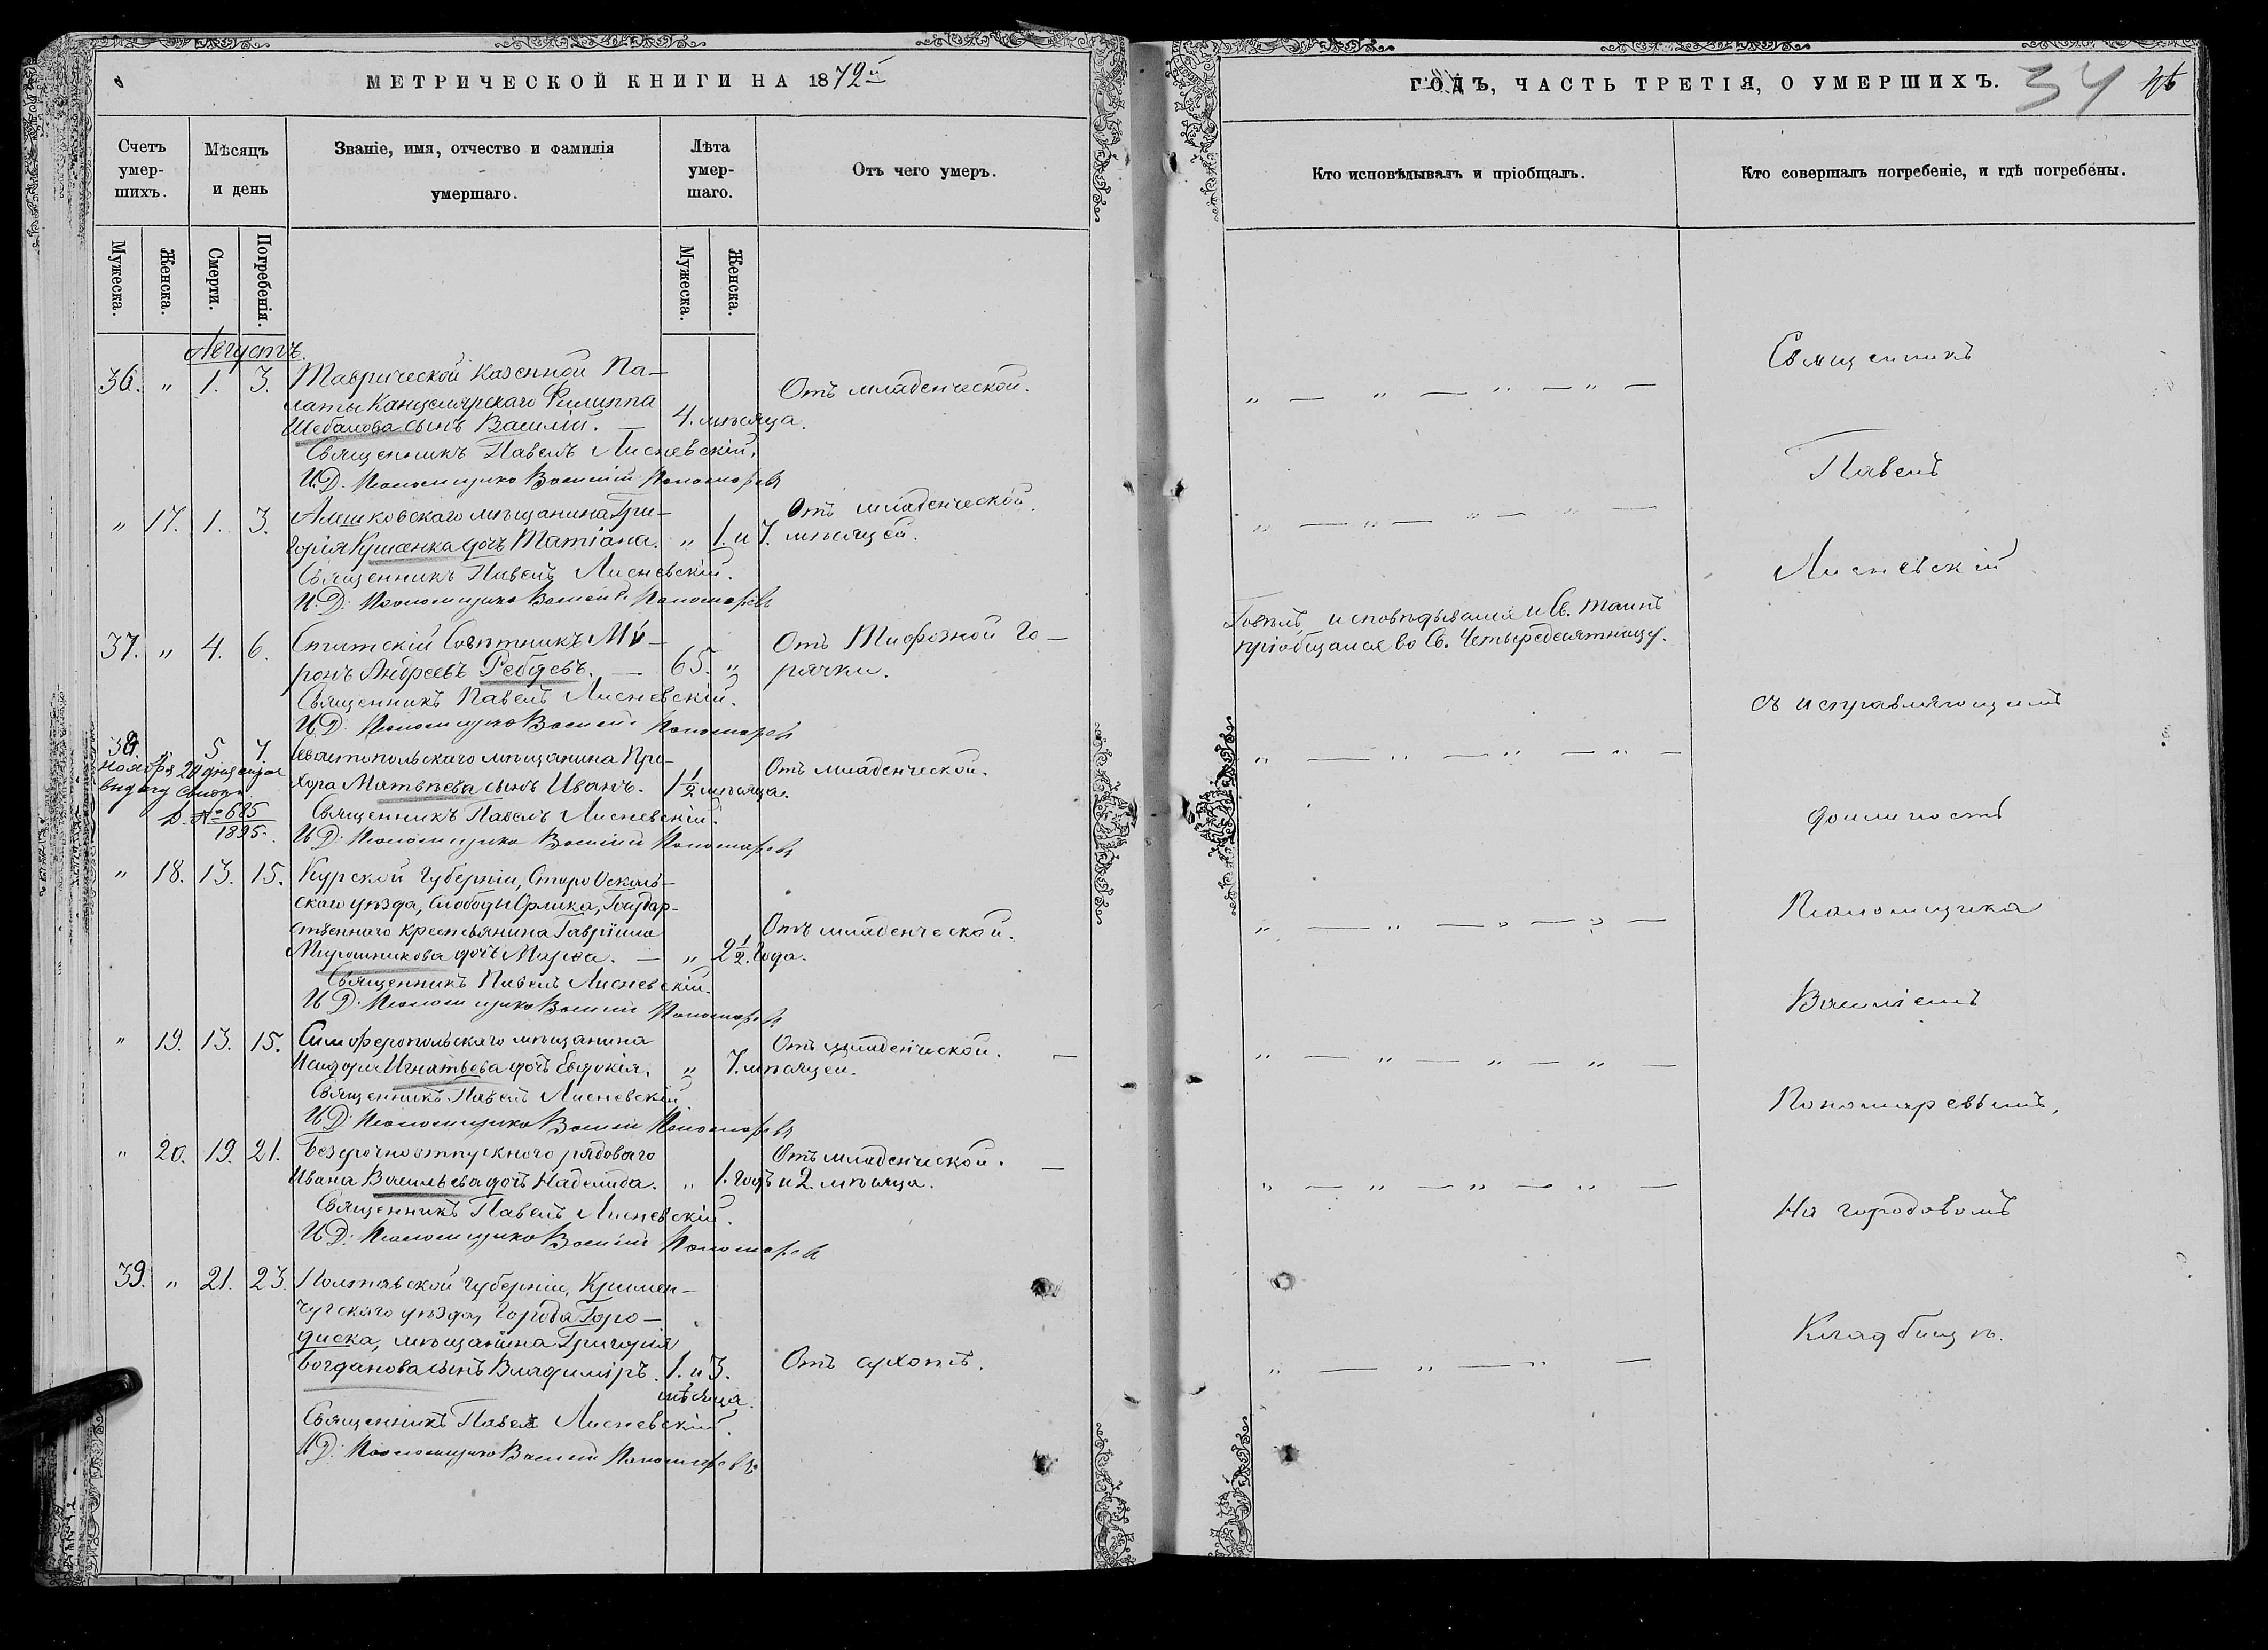 МЕТРИЧЕСКОЙ КНИГИ НА 1872й
Счетъ умер-шихъ.
Мѣсяцъ и день
Званіе, имя, отчество и фамилія умершаго.
Лѣта умер-шаго.
Отъ чего умеръ.
Мужеска.
Женска.
Смерти.
Погребенія.
Мужеска.
Женска.
Августъ.
36. " 1. 3. Таврической Казенной Па-
латы Канцелярскаго Филиппа
Шебанова сынъ Василій. — 4. мѣсяца. Отъ младенческой.
Священникъ Павелъ Лисневскій.
И.Д. Псаломщика Василій Пономаревъ
" 17. 1. 3. Алешковскаго мѣщанина Гри-
горія Кушанка дочь Татіана. " 1. и 7. мѣсяцей. Отъ младенческой.
Священникъ Павелъ Лисневскій.
И.Д. Псаломщика Василій Пономаревъ
37. " 4. 6. Статскій Совѣтникъ Ми-
ронъ Андреевъ — 65. " Отъ Тифозной Го-
рячки.
Священникъ Павелъ Лисневскій.
И.Д. Псаломщика Василій Пономаревъ
38. " 5 7. Севастопольскаго мѣщанина Про-
хора Матвѣева сынъ Иванъ. 1 1/2 мѣсяца. Отъ младенческой.
ноября 20 дня
выдачу
Д. № 685
1895.
Священникъ Павелъ Лисневскій.
И.Д. Псаломщика Василій Пономаревъ
" 18. 13. 15. Курской Губерніи, Старо Осколь-
скаго уѣзда, Слободы Орлика, Государ-
ственнаго крестьянина Гавріила
Мирошникова дочь Марѳа. — " 2 1/2. Года. Отъ младенческой.
Священникъ Павелъ Лисневскій.
И.Д. Псаломщика Василій Пономаревъ
" 19. 13. 15. Симферопольскаго мѣщанина
Исидора Игнатьева дочь Евдокія. " 7. мѣсяцей. Отъ младенческой. —
Священникъ Павелъ Лисневскій.
И.Д. Псаломщика Василій Пономаревъ
" 20. 19. 21. Безсрочноотпускного рядоваго
Ивана Васильева дочь Надежда. " 1. годъ и 2. мѣсяца. Отъ младенческой. —
Священникъ Павелъ Лисневскій.
И.Д. Псаломщика Василій Пономаревъ
39. " 21. 23. Полтавской Губерніи, Кримен-
чугскаго уѣзда, Города Горо-
диска, мѣщанина Григорія
Богданова сынъ Владиміръ. 1. и 3.
мѣсяца. Отъ сухотъ.
Священникъ Павелъ Лисневскій.
И.Д. Псаломщика Василій Пономаревъ.
ГОДЪ, ЧАСТЬ ТРЕТІЯ, О УМЕРШИХЪ.
34
Кто исповѣдывалъ и пріобщалъ.
Кто совершалъ погребеніе, и гдѣ погребены.
Говѣлъ, исповѣдывался и Св. таинъ
пріобщался во Св. Четыредесятницу.
Священникъ
Павелъ
Лисневскій
съ исправляющимъ
должность
Псаломщика
Василіемъ
Пономаревымъ,
На городовомъ
Кладбищѣ.